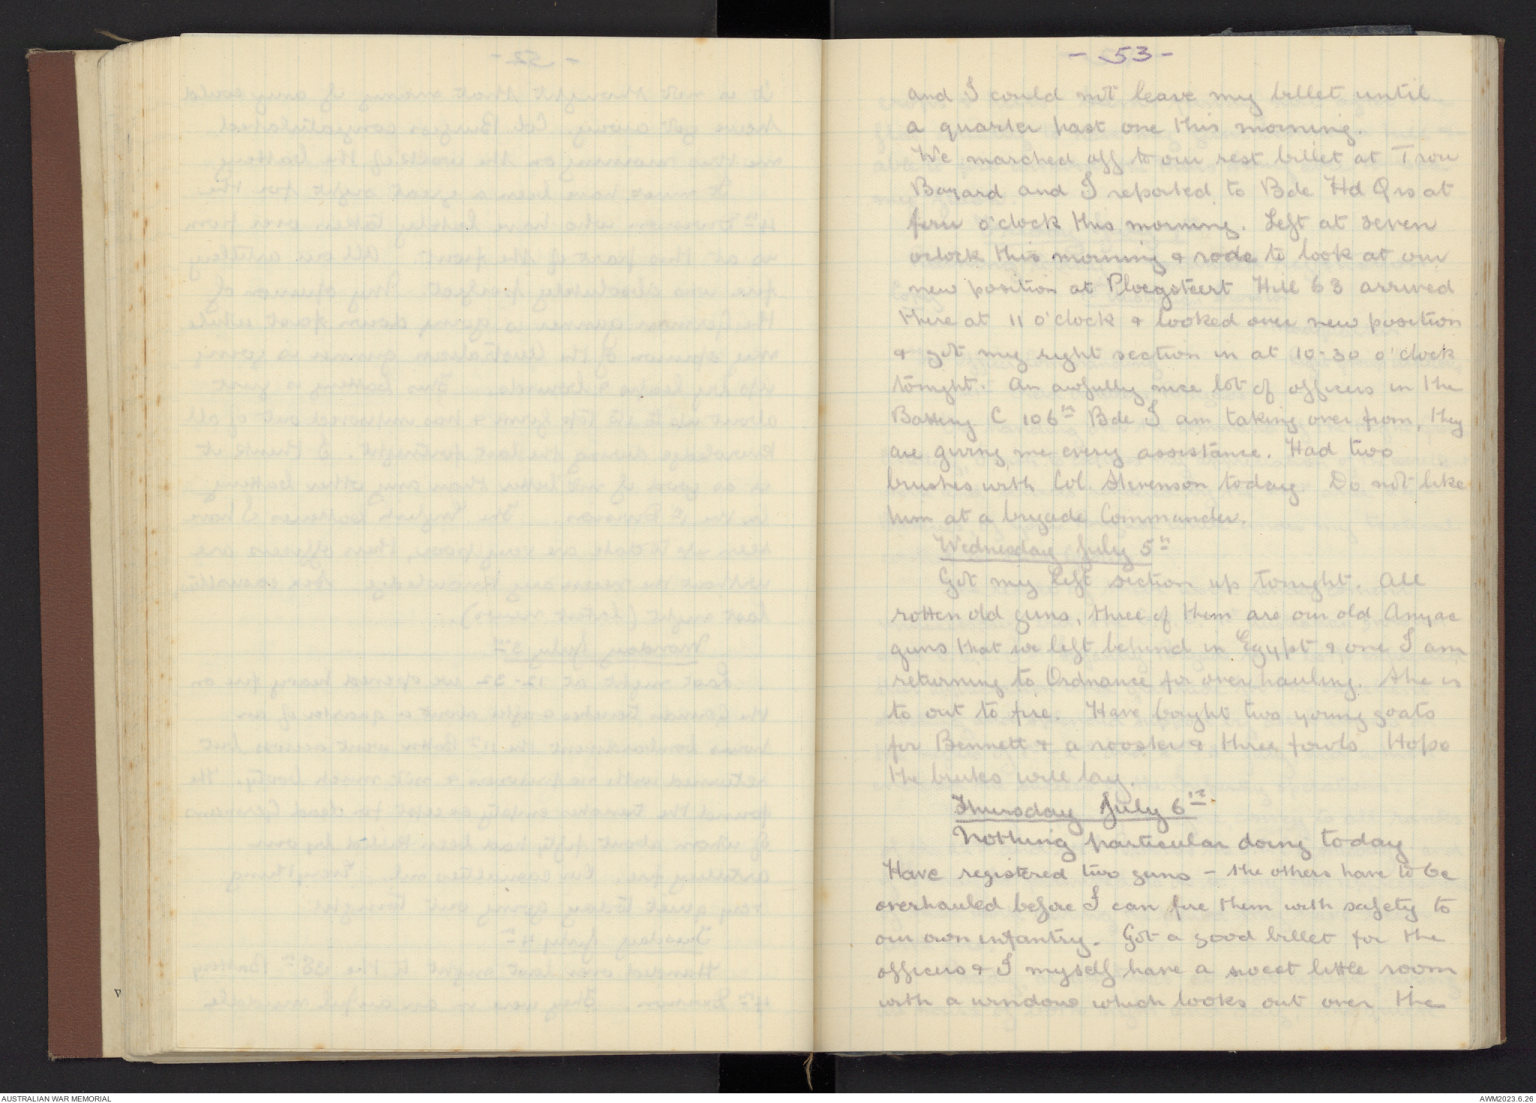 - 53 -
and I could not leave my billet until
a quarter past one this morning.
We marched off to our rest billet at Trou
Bayard and I reported to Bde Hd Qrs at
four o'clock this morning. Left at seven
oclock this morning & rode to look at our
new position at Ploegsteert Hill 63 arrived
there at 11 o'clock & looked over new position
& got my right section in at 10-30 o'clock
tonight. An awfully nice lot of officers in the
Battery C 106th Bde I am taking over from, they
are giving me every assistance. Had two
brushes with Col. Stevenson today. Do not like
him at a brigade Commander.
Wednesday July 5th
Got my left section up tonight. All
rotten old guns, three of them are our old Anzac
guns that we left behind in Egypt & one I am
returning to Ordnance for overhauling. She is
to out to fire. Have bought two young goats
for Bennett & a rooster & three fowls. Hope
the brutes will lay.
Thursday July 6th
Nothing particular doing today
Have registered two guns - the others have to be
overhauled before I can fire them with safety to
our own infantry. Got a good billet for the
officers & I myself have a sweet little room
with a window which looks out over the
AUSTRALIAN WAR MEMORIAL
AWM2023.6.26